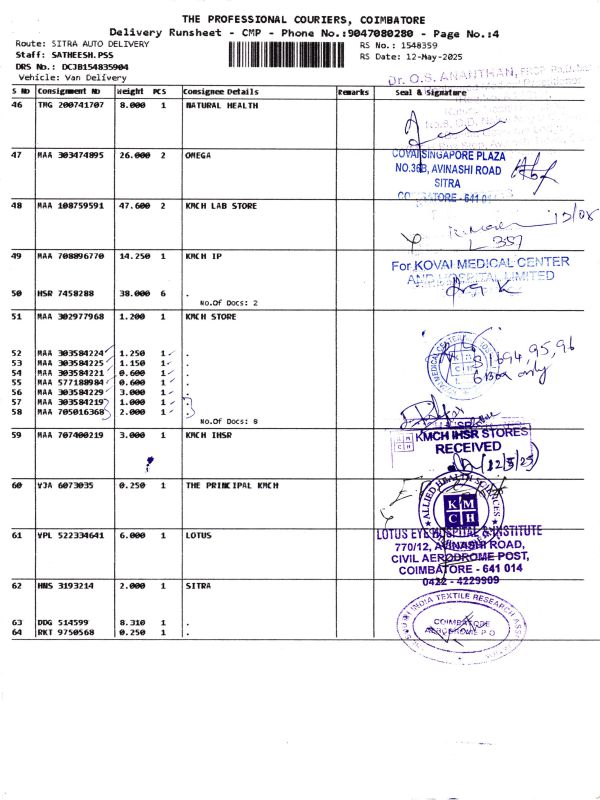 THE PROFESSIONAL COURIERS, COIMBATORE
Delivery Runsheet - CMP - Phone No.:9047080280 - Page No.:4
Route: SITRA AUTO DELIVERY
Staff: SATHEESH.PSS
DRS No.: DCJB154835904
Vehicle: Van Delivery
RS No.: 1548359
RS Date: 12-May-2025
Dr. O.S. ANANTHAN,
S No Consignment No Weight PCS Consignee Details Remarks Seal & Signature
46 TMG 200741707 8.000 1 NATURAL HEALTH
47 MAA 303474895 26.000 2 OMEGA
COVAI SINGAPORE PLAZA
NO.36B, AVINASHI ROAD
SITRA
COIMBATORE - 641 01
48 MAA 108759591 47.600 2 KMCH LAB STORE
49 MAA 708896770 14.250 1 KMCH IP
For KOVAI MEDICAL CENTER
AND HOSPITAL LIMITED
50 HSR 7458288 38.000 6 .
No.Of Docs: 2
51 MAA 302977968 1.200 1 KMCH STORE
52 MAA 303584224 1.250 1 .
53 MAA 303584225 1.150 1 .
54 MAA 303584221 0.600 1 .
55 MAA 577188984 0.600 1 .
56 MAA 303584229 3.000 1 .
57 MAA 303584219 1.000 1 .
58 MAA 705016368 2.000 1 .
No.Of Docs: 8
KMCH
81694,95,96
6 Box only
59 MAA 707400219 3.000 1 KMCH IHSR
KMCH IHSR STORES
RECEIVED
(12/5/25)
60 VJA 6073035 0.250 1 THE PRINCIPAL KMCH
ALLIED HEALTH SCIENCES
KMCH
61 VPL 522334641 6.000 1 LOTUS
LOTUS EYE HOSPITAL & INSTITUTE
770/12, AVINASHI ROAD,
CIVIL AERODROME POST,
COIMBATORE - 641 014
0422 - 4229909
62 HNS 3193214 2.000 1 SITRA
63 DDG 514599 8.310 1 .
64 RKT 9750568 0.250 1 .
INDIA TEXTILE RESEARCH
COIMBATORE
AERODROME P O